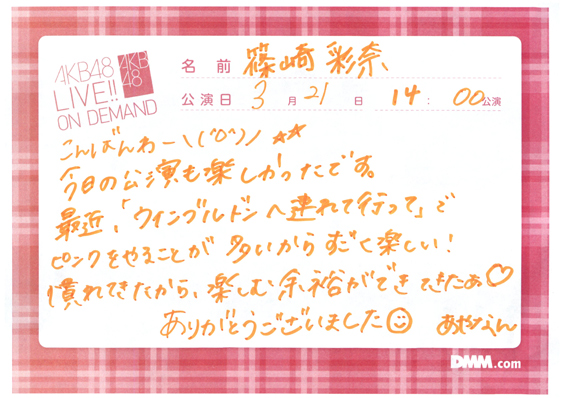 AKB48
LIVE!!
ON DEMAND
AKB
48
名前 篠崎 彩奈
公演日 3月21日 14:00公演
こんばんわー\(^o^)/ ☆☆
今日の公演も楽しかったです。
最近、「ウィンブルドンへ連れて行って」で
ピンクをやることが多いからすごく楽しい!
慣れてきたから、楽しむ余裕ができてきたぁ♡
ありがとうございました☺ あやなん
DMM.com